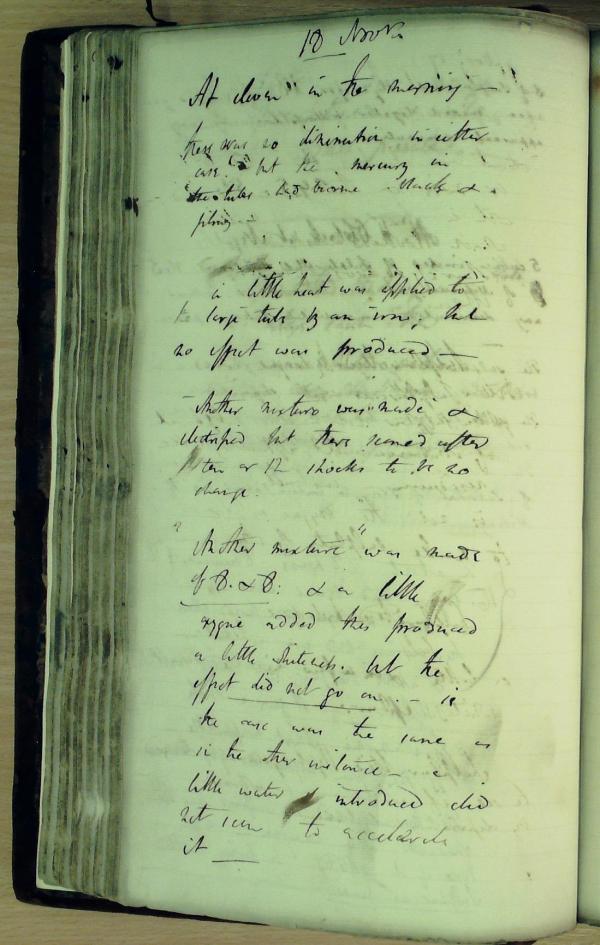 18 Novr
At eleven in the morning —
there was no diminution in either
case. but the mercury in
the tubes had become black &
filmy
a little heat was applied to
the large tube by an iron; but
no effect was produced —
Another mixture was made &
electrified but there seemed after
ten or 12 shocks to be no
change.
Another mixture was made
of 8. & 8: & a little
oxygene added this produced
a little whiteness. but the
effect did not go on. — in
the case was the same as
in the other instance — a
little water introduced did
not seem to accelerate
it —